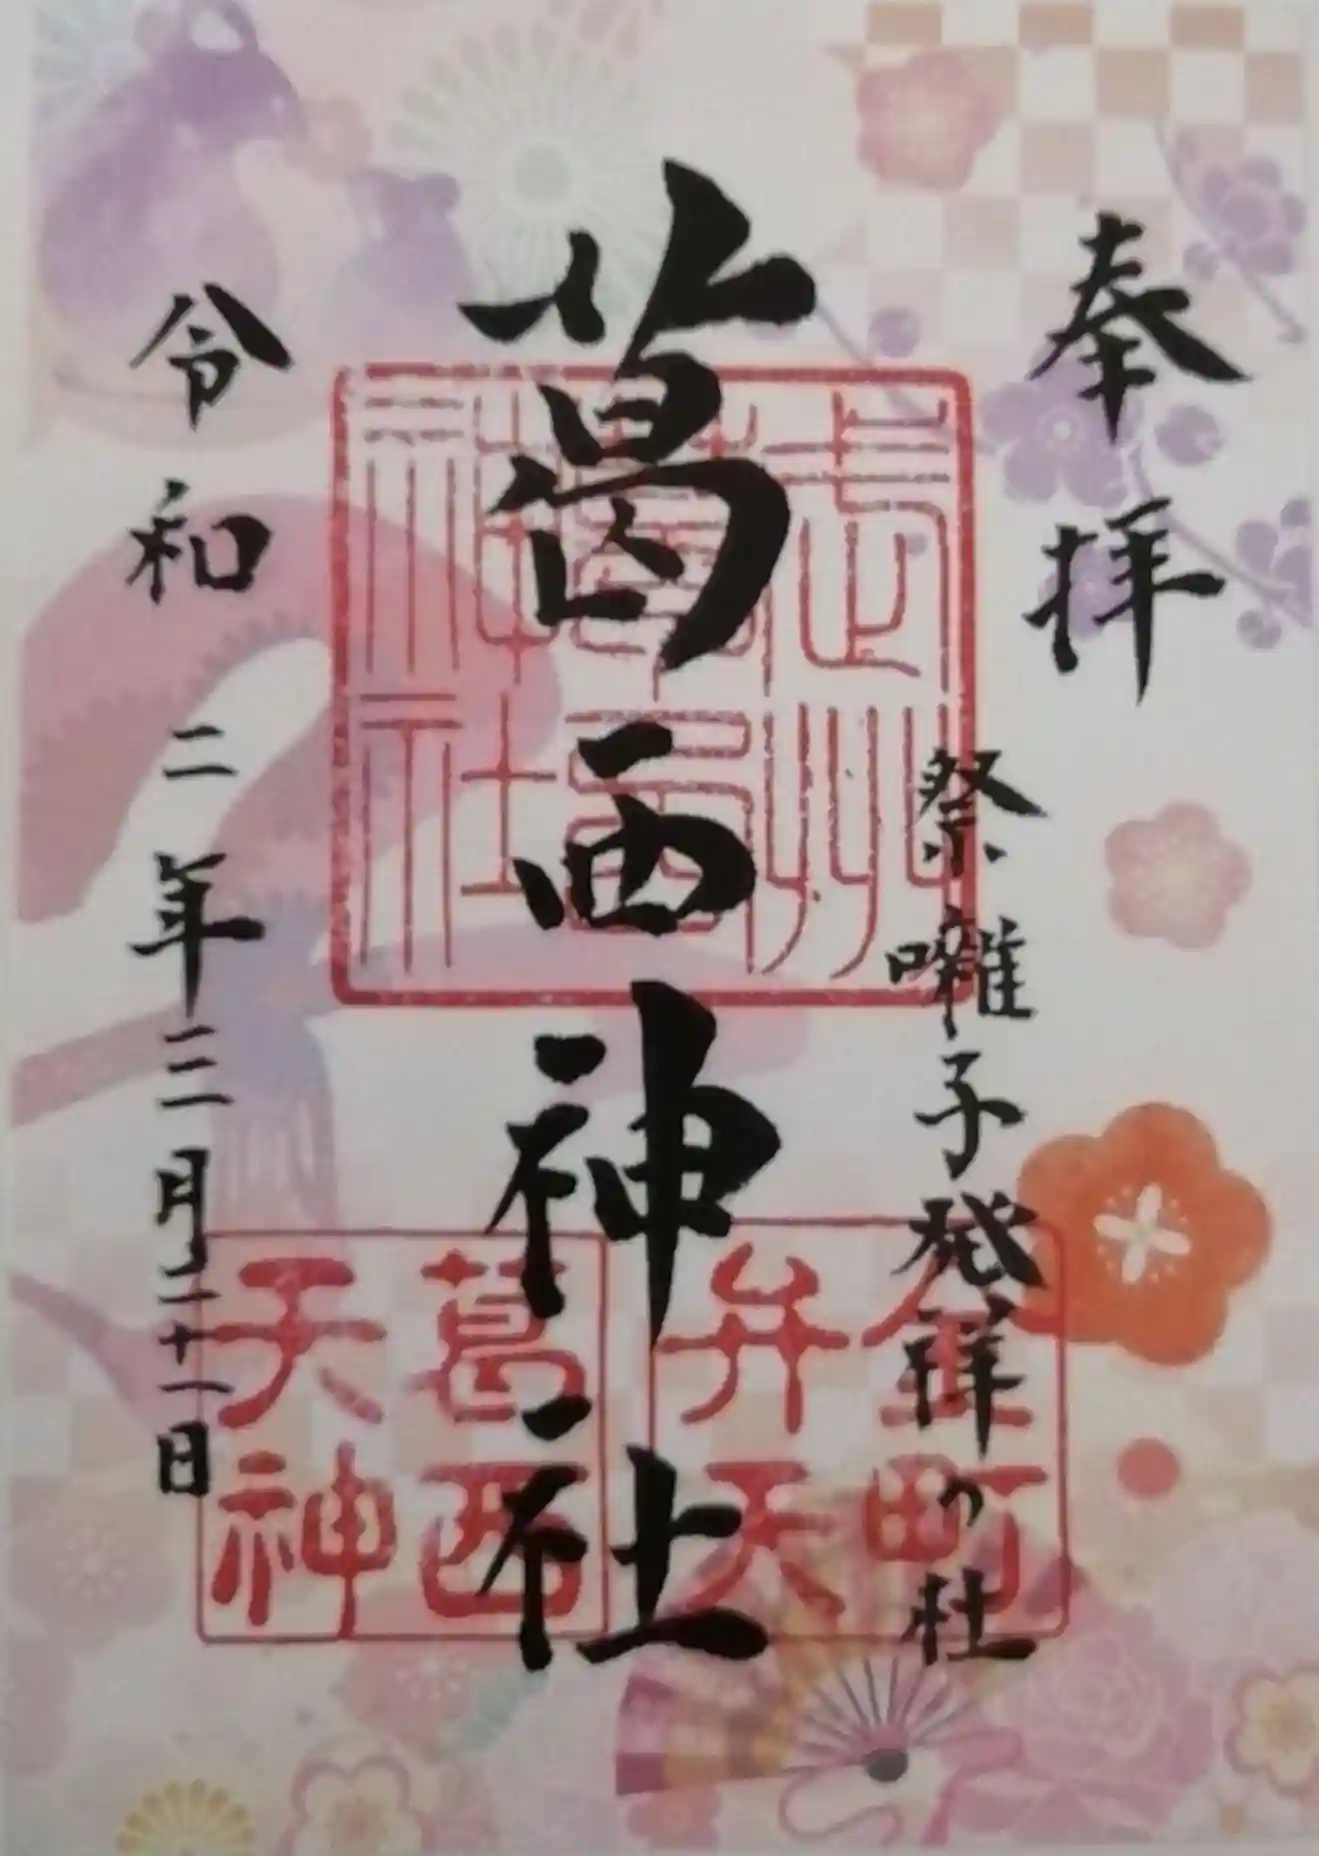 奉拝
祭囃子発祥の社
葛西神社
令和二年三月二十一日
武州
葛西
神社
金町
弁天
葛西
天神